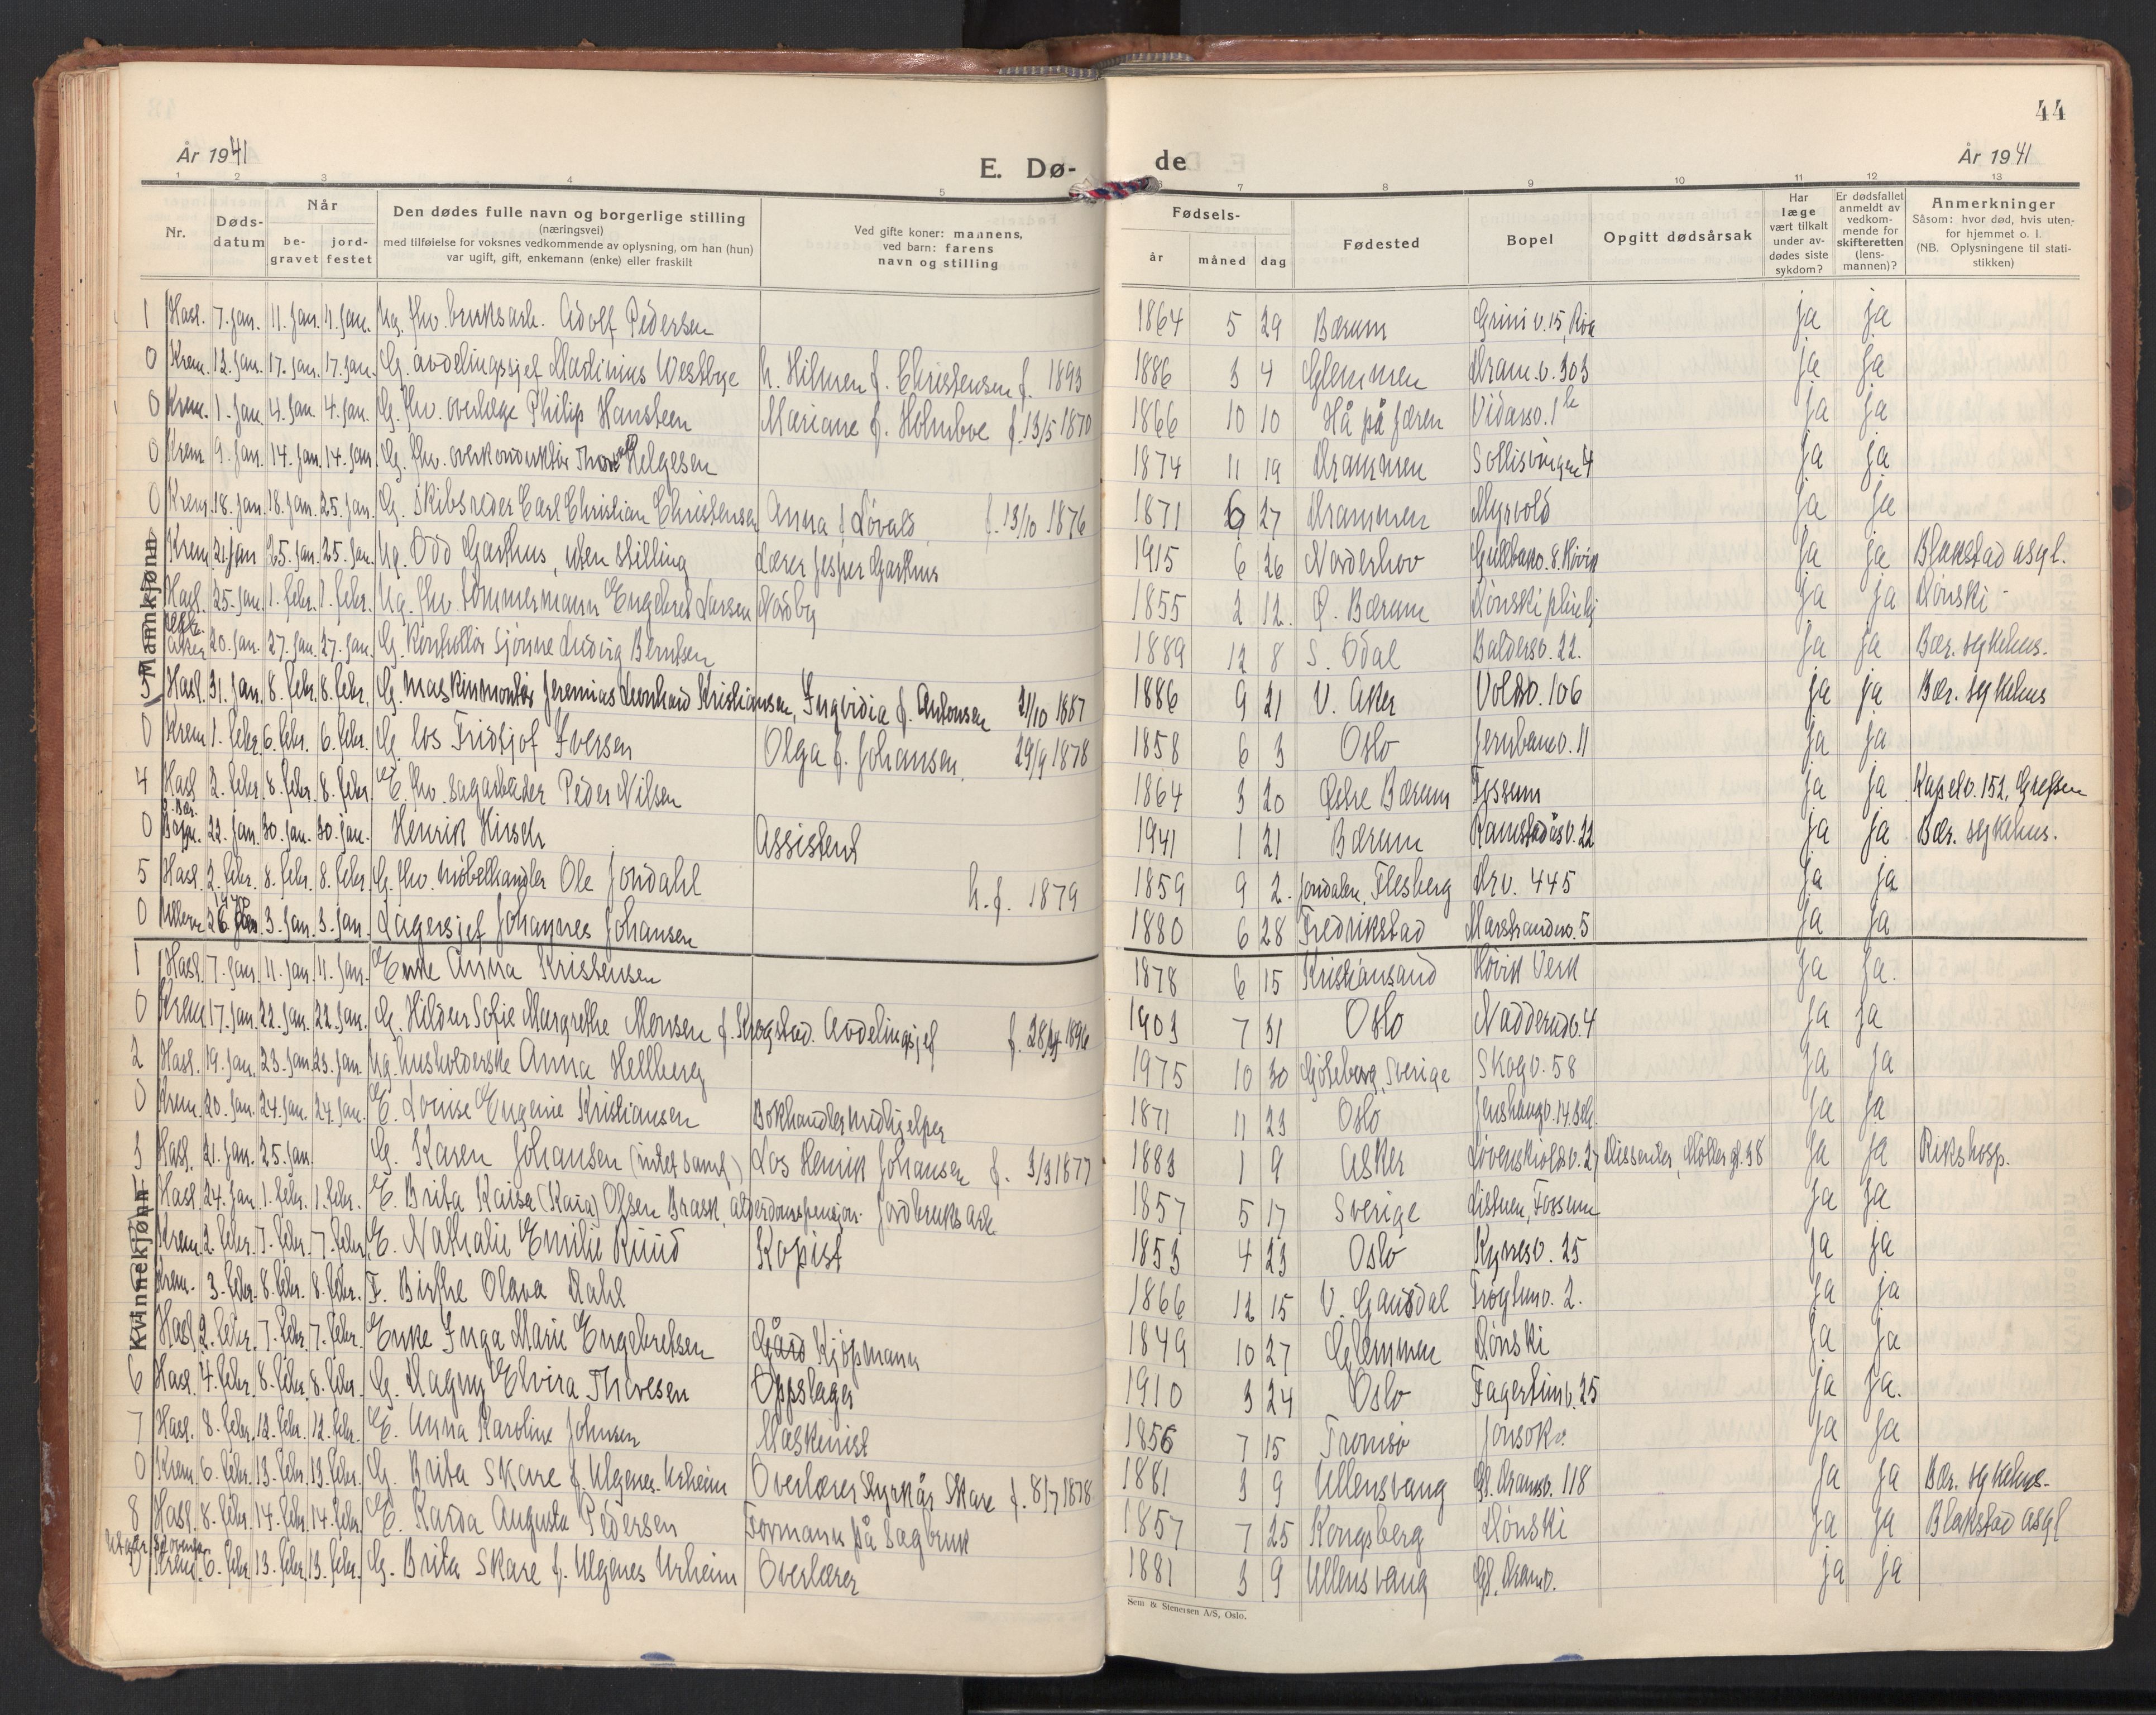 44
År 1941
E. Dø-
de
År 1941
1 2 3 4 5 6 7 8 9 10 11 12 13
Nr.
Døds-datum
Når
be-gravet
jord-festet
Den dødes fulle navn og borgerlige stilling
(næringsvei)
med tilføielse for voksnes vedkommende av oplysning, om han (hun)
var ugift, gift, enkemann (enke) eller fraskilt
Ved gifte koner: mannens,
ved barn: farens
navn og stilling
Fødsels-
år
måned
dag
Fødested
Bopel
Opgitt dødsårsak
Har læge vært tilkalt under av-dødes siste sykdom?
Er dødsfallet anmeldt av vedkom-mende for skifteretten (lens-mannen)?
Anmerkninger
Såsom: hvor død, hvis uten-
for hjemmet o. l.
(NB. Oplysningene til stati-
stikken)
Mannkjønn
1 Hasl. 7. jan. 11. jan. 11. jan. Ug. fhv. bruksarb. Adolf Pedersen 1864 5 29 Bærum Grini v. 15, Røa ja ja
0 Krem. 13. jan. 17. jan. 17. jan. G. avdelingssjef Martinius Westbye h. Hilmen f. Christensen f. 1893 1886 3 4 Glemmen Dram.v. 303 ja ja
0 Krem. 1. jan. 4. jan. 4. jan. G. fhv. overlæge Philip Hansteen Mariane f. Holmboe f. 13/5 1870 1866 10 10 Hå på Jæren Vidarsv. 1b ja ja
0 Krem. 9. jan. 14. jan. 14. jan. G. fhv. overkonduktør Thorvald Helgesen 1874 11 19 Drammen Sollisvingen 4 ja ja
0 Krem. 18. jan. 18. jan. 25. jan. G. Skibsreder Carl Christian Christensen Anna f. Løvald f. 13/10 1876 1871 6 27 Drammen Myrvold ja ja
Krem. 21. jan. 25. jan. 25. jan. Ug. Odd Garthus, uten stilling Lærer Jesper Garthus 1915 6 26 Norderhov Gullbakv. 8. Høvik ja ja Blakstad asyl.
Hasl. 25. jan. 1. febr. 1. febr. Ug. fhv. tømmermann Engebret Larsen Nordby 1855 2 12. Ø. Bærum Dønski pleiehj ja ja Dønski
Vestre Aker 20. jan. 27. jan. 27. jan. G. Kontrollør Sjønne Ludvig Berntsen 1889 12 8 S. Odal Baldersv. 22. ja ja Bær. sykehus.
3 Hasl. 31. jan. 8. febr. 8. febr. G. maskinmontør Jeremias Leonhard Kristiansen, Ingvidia f. Antonsen 21/10 1887 1886 9 21 V. Aker Vollsv. 106 ja ja Bær. sykehus
0 Krem 1. febr. 6. febr. 6. febr. G. los Fridtjof Iversen Olga f. Johansen. 29/9 1878 1858 6 3 Oslo Jernbanev. 11 ja ja
4 Hasl. 3. febr. 8. febr. 8. febr. E. fhv. sagarbeider Peder Nilsen 1864 3 20 Østre Bærum Fossum ja ja Kapelv. 152, Grefsen
0 22. jan. 30. jan. 30. jan. Henrik Hirsch Assistent 1941 1 21 Bærum Ramstadåsv. 22 ja ja Bær. sykehus.
5 Hasl. 2. febr. 8. febr. 8. febr. G. fhv. møbelhandler Ole Jondahl h. f. 1879 1859 9 2. Jondalen, Flesberg Drv. 445 ja ja
0 Ullern 26. 3. jan. 3. jan. Lagersjef Johannes Johansen 1880 6 28 Fredrikstad Marstrandsv. 5 ja ja
Kvinnekjønn
1 Hasl. 7. jan. 11. jan. 11. jan. Enke Anna Kristensen 1878 6 15 Kristiansand Høvik Verk ja ja.
0 Krem 17. jan. 22. jan. 22. jan. G. Hildur Sofie Margrethe Monsen f. Krogstad. Avdelingsjef f. 1896 1903 7 31 Oslo Nadderudv. 4 ja ja
2 Hasl. 19. jan. 23. jan. 23. jan. Ug. husholderske Anna Hellberg 1975 10 30 Göteborg, Sverige Skogv. 58 ja ja
0 Krem. 20. jan. 24. jan. 24. jan. E. Louise Eugenie Kristiansen Bokhandlermedhjelper 1871 11 23 Oslo Jenshaugv. 14. ja ja
3 Hasl. 21. jan. 25. jan G. Karen Johansen (intet samf.) Los Henrik Johansen f. 3/3 1877 1883 1 9 Asker Løvenskioldsv. 27 Dissenter, Møllergt. 38 ja ja Rikshosp.
Hasl. 24. jan. 1. febr. 1. febr. E. Brita Kaisa (Kaia) Olsen Brask, alderdomspensjon. Jordbruksarb. 1857 5 17 Sverige Listuen, Fossum ja ja
Krem. 2. febr. 7. febr. 7. febr. E. Nathalie Emilie Ruud Kopist 1853 4 23 Oslo Kyrresv. 25 ja ja
Krem. 3. febr. 8. febr. 8. febr. F. Birthe Olava Dahl 1866 12 15 V. Gausdal Frøytunv. 2. ja ja
Hasl. 2. febr. 7. febr. 7. febr. Enke Inga Marie Engebretsen Gård Kjøpmann 1849 10 27 Glemmen Dønski ja ja
6 Hasl. 4. febr. 8. febr. 8. febr. G. Dagny Elvira Thoresen Oppslager 1910 3 24 Oslo Fagertunv. 25 ja ja.
7 Hasl. 8. febr. 12. febr. 12. febr. E. Anna Karoline Johnsen Maskinist 1856 7 15 Tromsø Jonsokv. ja ja
0 Krem. 6. febr. 13. febr. 13. febr. G. Brita Skare f. Ulgenes Urheim Overlærer Styrkår Skare f. 8/7 1878 1881 3 9 Ullensvang Gl. Dramv. 118 ja ja Bær. sykehus.
8 Hasl. 8. febr. 14. febr. 14. febr. E. Karda Augusta Pedersen Formann på Sagbruk 1857 7 25 Kongsberg Dønski ja ja Blakstad asyl
Utgår. Se ovenfor
0 Krem. 6. febr. 13. febr. 13. febr. G. Brita Skare f. Ulgenes Urheim Overlærer 1881 3 9 Ullensvang Gl. Dramv. ja ja
Sem & Stenersen A/S, Oslo.